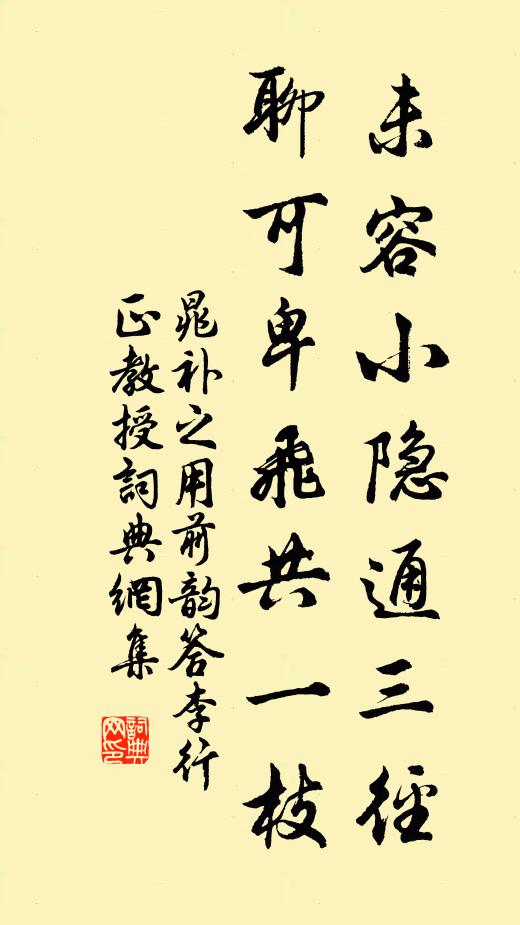 未容小隐通三徑
聊可卑飛共一枝
晁补之用前韵答李行
正教授詞典網集
詞典网印